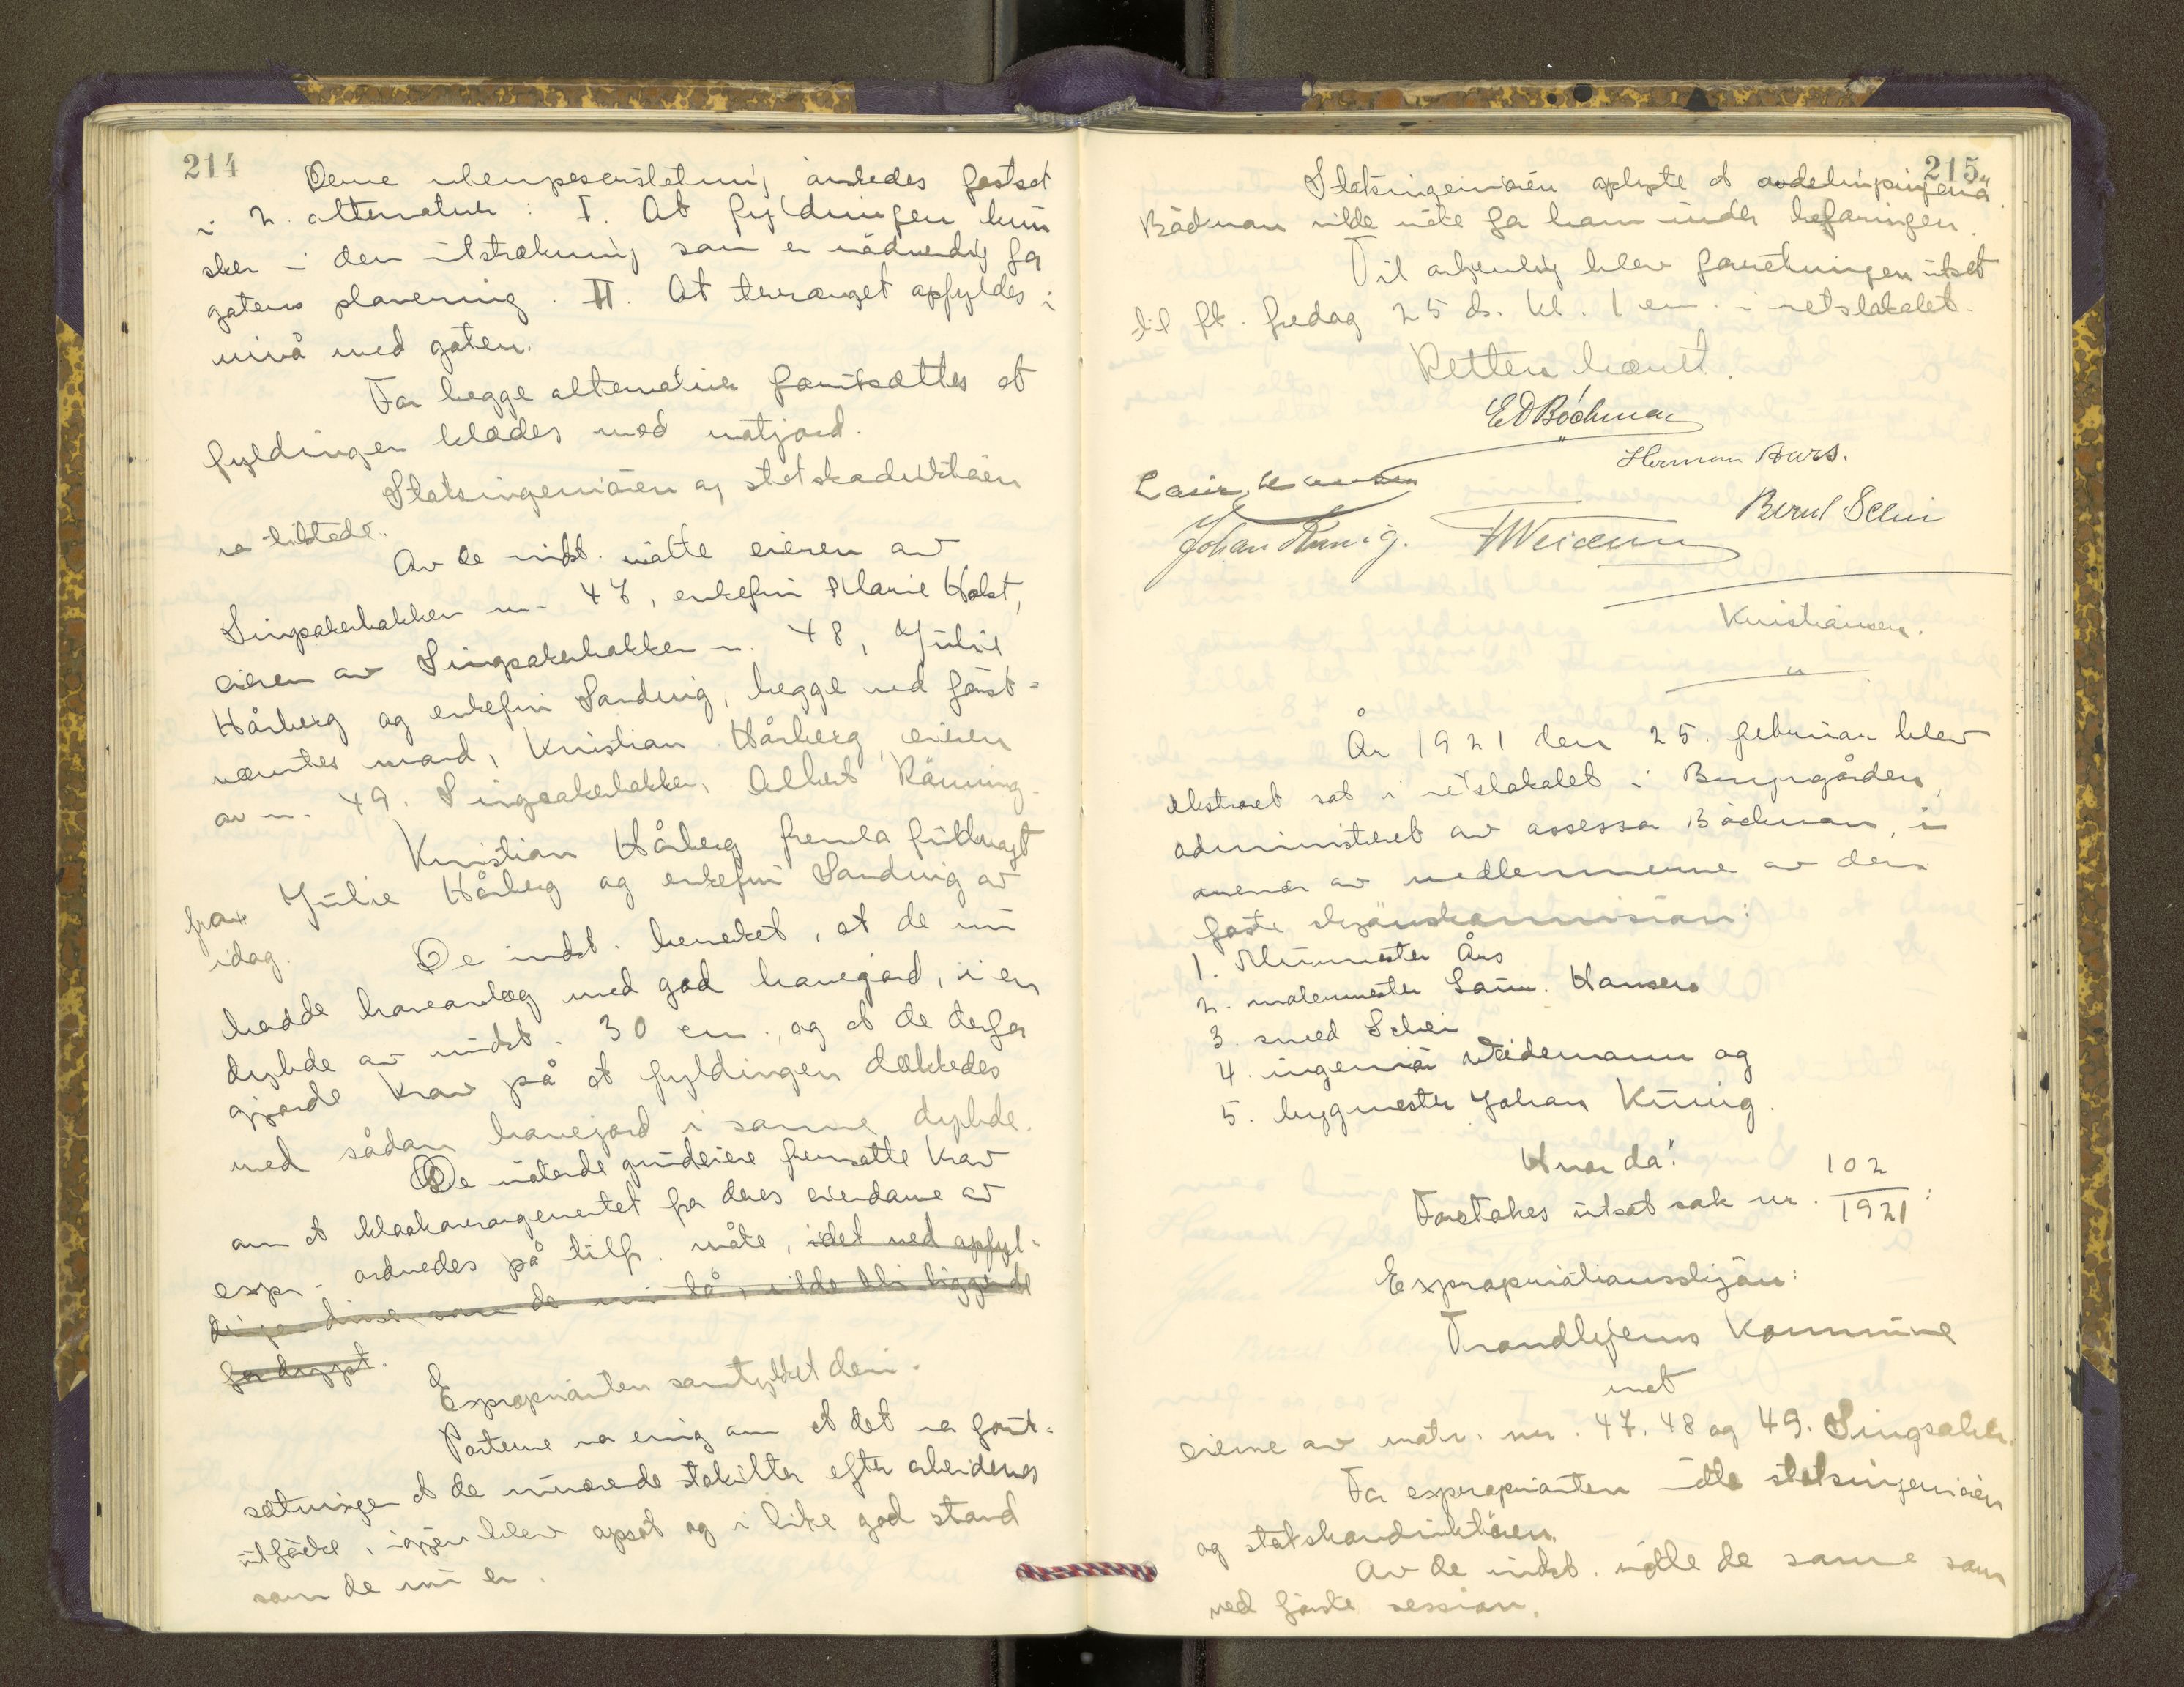 214
Denne ulempeserstatning önskedes fastsat
i 2 alternativer: I. At fyldningen kun
sker i den utstrækning som er nödvendig for
gatens planering. II. At terrænget opfyldes i
nivå med gaten.
For begge alternativer forutsættes at
fyldingen klædes med matjord.
Statsingeniören og statskonduktören
va tilstede.
Av de indst. mötte eieren av
Singsakerbakken nr. 47, enkefru Marie Holst,
eieren av Singsakerbakken nr. 48, Julie
Hårberg og enkefru Sandvig, begge ved först-
nævntes mand, Kristian Hårberg, eieren
av nr. 49. Singsakerbakken, Albert Rönning.
Kristian Hårberg fremla fuldmagt
fra Julie Hårberg og enkefru Sandvig av
idag.
De indst. bemerket, at de nu
hadde haveanlæg med god havejord, i en
dybde av mindst 30 cm., og at de derfor
gjorde krav på at fyldingen dækkedes
med sådan havejord i samme dybde.
De mötende grundeiere fremsatte krav
om at kloakarrangementet for deres eiendomme av
expr. ordnedes på tilfr. måte, idet ved opfyl-
dingen disse som de nu lå, vilde bli liggende
for dypt.
Exproprianten samtykket deri.
Parterne va enig om at det va forut-
sætningen at de nuværende stakitter efter arbeidenes
utförelse, igjen blev opsat og i like god stand
som de nu er.
215.
Statsingeniören oplyste at avdelingsingeniör
Bödman vilde möte for ham under befaringen.
Til avhjemling blev forretningen utsat
til fk. fredag 25 ds. kl. 1 em. i retslokalet.
Retten hævet.
ED Böchman
Herman Aars.
Laur. Hansen
Bernt Schei
Johan Kunig. HWeidemann
Kristiansen.
"
År 1921 den 25. februar blev
ekstraret sat i retslokalet i Borgergården,
administreret av assessor Böchman, i
overvær av medlemmerne av den
faste skjönskommission:
1. Murmester Års
2. malermester Laur. Hansen
3. smed Schei
4. ingeniör Weidemann og
5. bygmester Johan Künig.
Hvorda!
Foretokes utsat sak nr. 102/1921:
Expropriationsskjön:
Trondhjems kommune
mot
eierne av matr. nr. 47. 48 og 49. Singsaker.
For exproprianten mötte statsingeniören
og statskonduktören.
Av de indst. mötte de samme som
ved förste session.